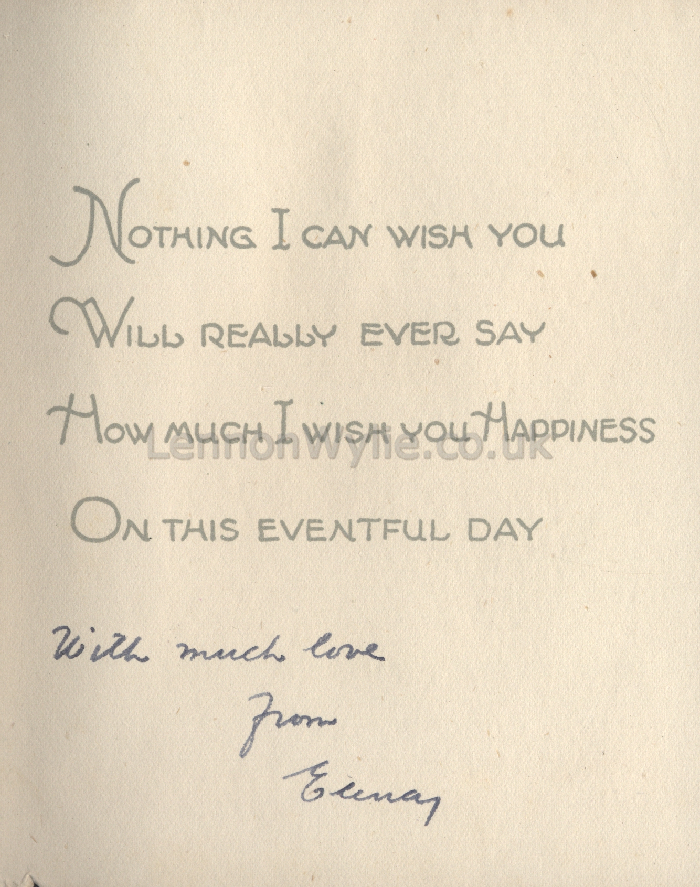 Nothing I can wish you
Will really ever say
How much I wish you Happiness
LennonWylie.co.uk
On this eventful day
With much love
From